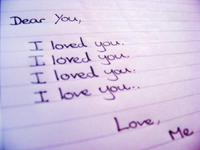 Dear You,
I loved you.
I loved you.
I loved you.
I love you..
Love,
Me